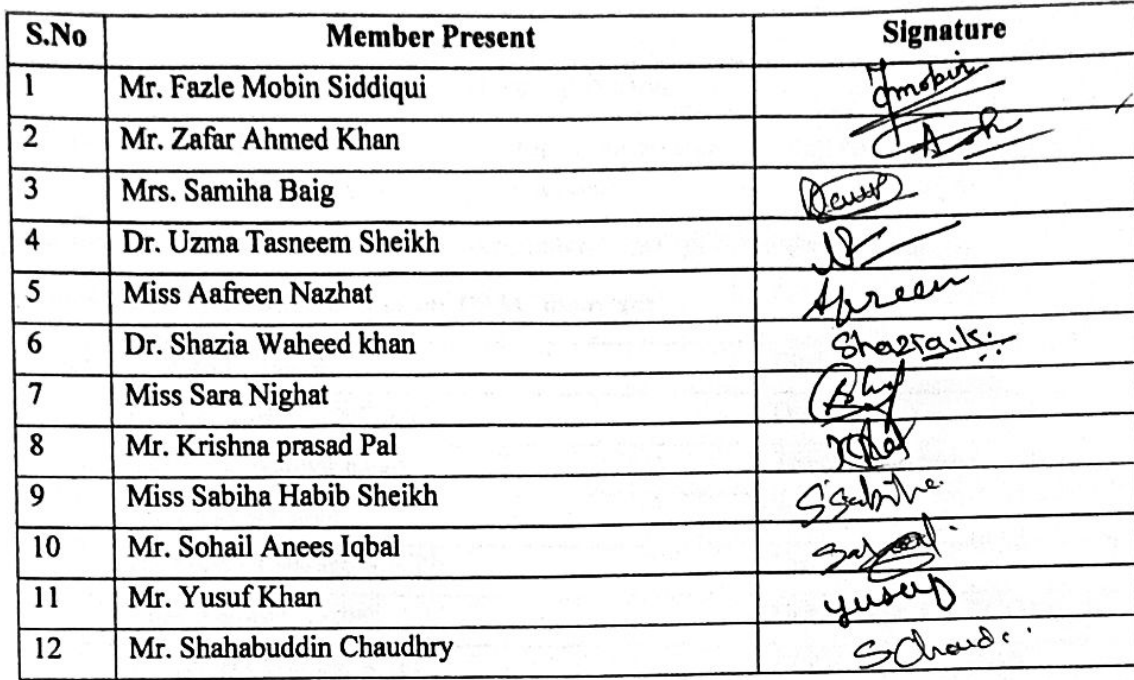 S.No Member Present Signature
1 Mr. Fazle Mobin Siddiqui Fmobin
2 Mr. Zafar Ahmed Khan
3 Mrs. Samiha Baig
4 Dr. Uzma Tasneem Sheikh
5 Miss Aafreen Nazhat Afreen
6 Dr. Shazia Waheed khan Shazia.k.
7 Miss Sara Nighat
8 Mr. Krishna prasad Pal
9 Miss Sabiha Habib Sheikh SSabiha.
10 Mr. Sohail Anees Iqbal
11 Mr. Yusuf Khan yusuf
12 Mr. Shahabuddin Chaudhry SChaud.